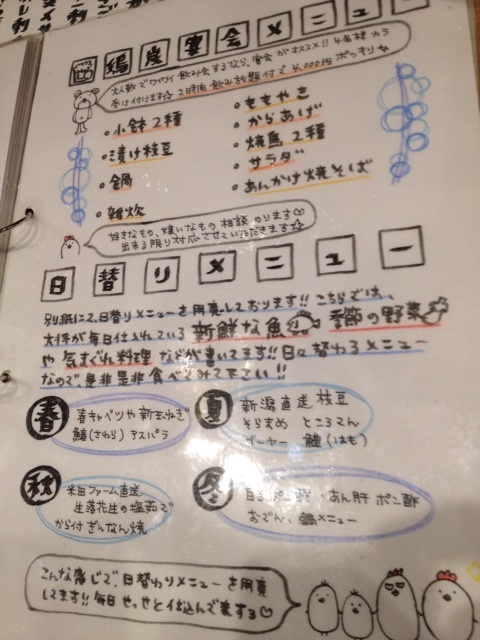 宴会メニュー
大人数でワイワイ飲み会するなら、宴会がオススメ!! 4名様カラ
受け付けます☆ 2時間飲み放題付で4,000円ポッキリ☆
・小鉢2種
・漬け枝豆
・鍋
・雑炊
・ももやき
・からあげ
・焼鳥2種
・サラダ
・あんかけ焼そば
好きなもの、嫌いなもの相談のります♡
出来る限り対応させていただきます☆
日替りメニュー
別紙にて、日替りメニューを用意しております!! こちらでは、
大将が毎日仕入れている新鮮な魚 季節の野菜
や気まぐれ料理などが書いてます!! 日々替わるメニュー
なので、是非是非食べてみて下さい!!
春
春キャベツや新玉ねぎ
鰆(さわら) アスパラ
夏
新潟直送枝豆
そらまめ ところてん
ゴーヤー 鱧(はも)
秋
米田ファーム直送
生落花生の塩茹で
から付ぎんなん焼
冬
白子ポン酢・あん肝ポン酢
おでん、鍋メニュー
こんな感じで、日替わりメニューを用意
してます!! 毎日せっせと仕込んで表する♡